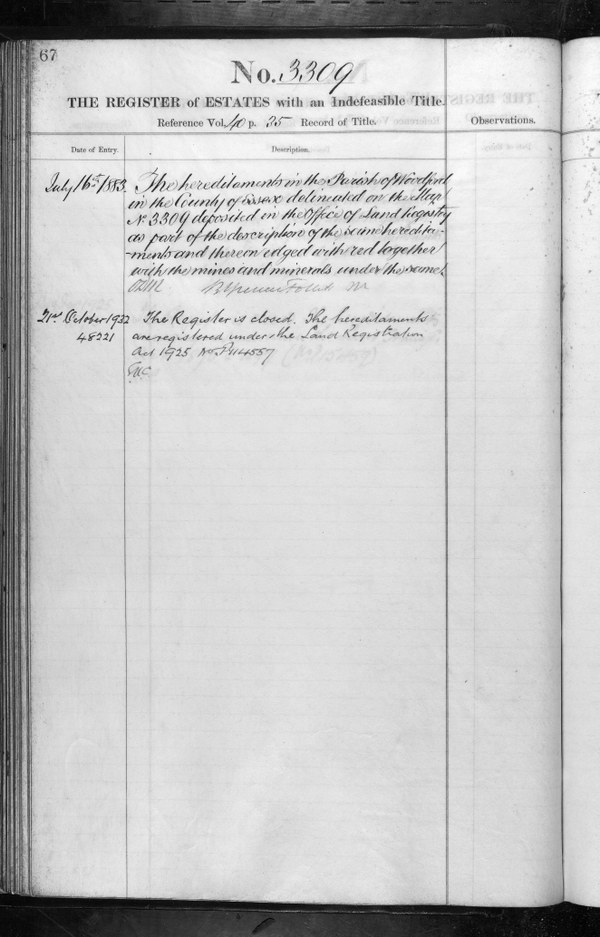 67
No. 3309
THE REGISTER of ESTATES with an Indefeasible Title.
Reference Vol. 40 p. 35 Record of Title.
Observations.
Date of Entry.
Description.
July 16th 1883. The hereditaments in the Parish of Woodford
in the County of Essex delineated on the Map
No 3309 deposited in the Office of Land Registry
as part of the description of the same heredita-
-ments and thereon edged with red together
with the mines and minerals under the same
21st October 1932 The Register is closed. The hereditaments
48221 are registered under the Land Registration
Act 1925 No P114557